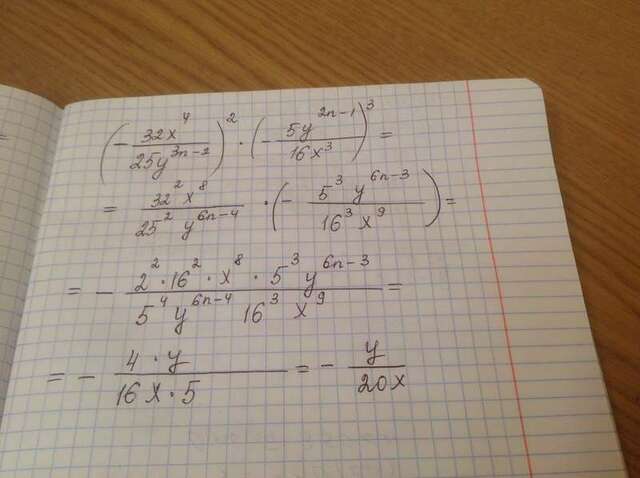 (- 32x⁴ / 25y³ⁿ⁻²)² · (- 5y²ⁿ⁻¹ / 16x³)³ =
= 32² x⁸ / 25² y⁶ⁿ⁻⁴ · (- 5³ y⁶ⁿ⁻³ / 16³ x⁹) =
= - 2² · 16² · x⁸ · 5³ y⁶ⁿ⁻³ / 5⁴ y⁶ⁿ⁻⁴ 16³ x⁹ =
= - 4 · y / 16x · 5 = - y / 20x